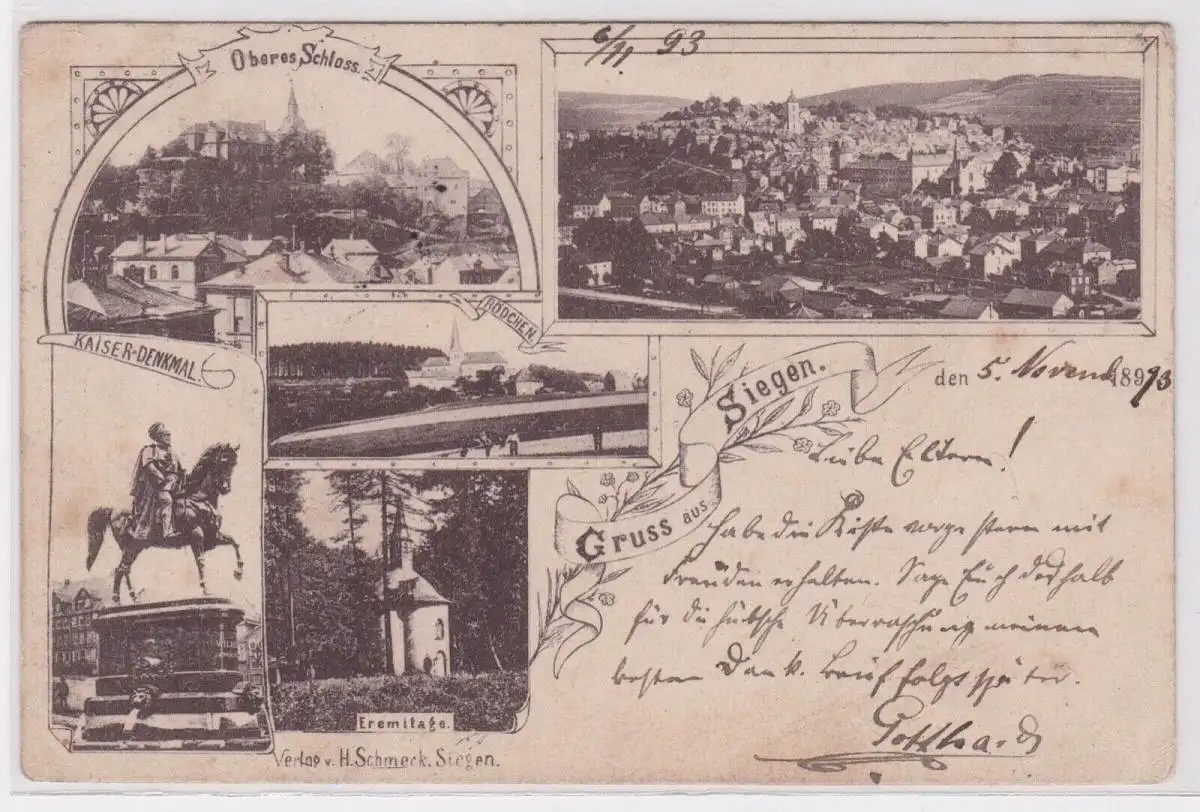 Oberes Schloss.
6/11 93
RÖDCHEN.
KAISER-DENKMAL.
Gruss aus Siegen.
den 5. Novemb. 1893
Liebe Eltern!
Habe die Kiste vorgestern mit
Freuden erhalten. Sage Euch deshalb
für die hübsche Überraschung meinen
besten Dank. Brief folgt später.
Gotthard
Eremitage.
Verlag v. H. Schmeck. Siegen.